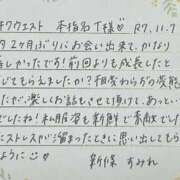 ウエスト 本指名T様 R7.11.7
2ヶ月ぶりにお会い出来て、かなり
しかったです!前回よりも成長したと
じてもらえましたか?相変わらずの変態
たが、楽しくお話もさせて頂けて、あっと
でしたね!私服姿も新鮮で素敵でした
にストレスが溜まったときに思い出してもら
ように
新條 すみれ